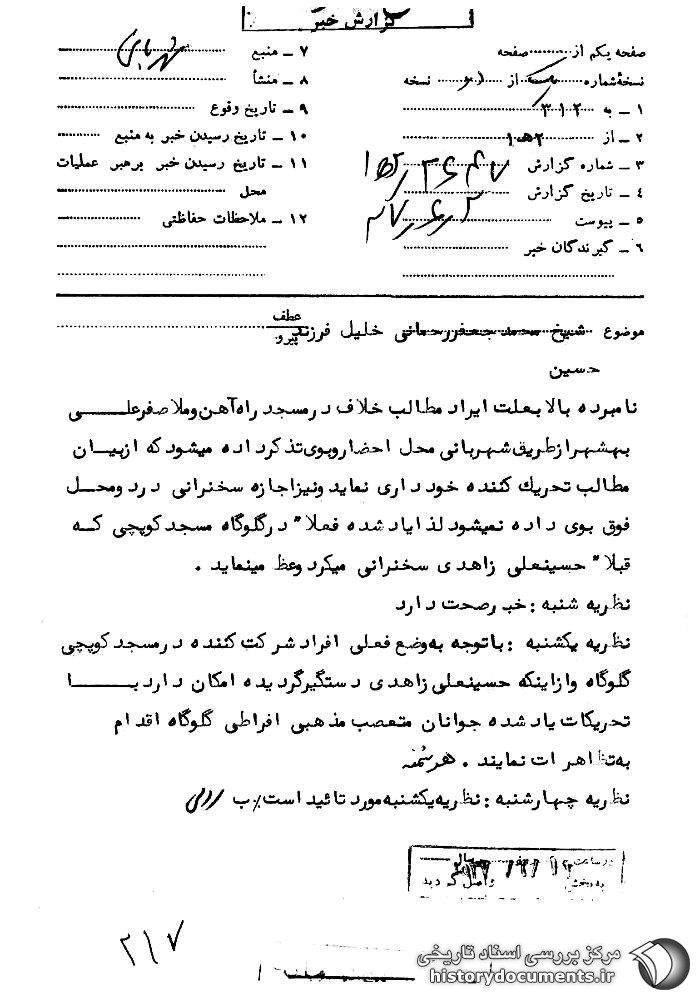 گزارش خبر
صفحه یکم از ........ صفحه
نسخهٔ شماره ........ از ........ نسخه
۱ ـ به ۳۱۲
۲ ـ از ۱ه۲
۳ ـ شماره گزارش
۴ ـ تاریخ گزارش
۵ ـ پیوست
۶ ـ گیرندگان خبر
۷ ـ منبع
۸ ـ منشأ
۹ ـ تاریخ وقوع
۱۰ ـ تاریخ رسیدن خبر به منبع
۱۱ ـ تاریخ رسیدن خبر برهبر عملیات
محل
۱۲ ـ ملاحظات حفاظتی
موضوع شیخ محمدجعفررحمانی خلیل فرزند
عطف
پیرو
حسین
نامبرده بالابعلت ایراد مطالب خلاف درمسجد راه‌آهن وملاصفرعلی
بهشهرازطریق شهربانی محل احضاروبوی تذکرداده میشودکه ازبیان
مطالب تحریك کننده خودداری نماید ونیزاجازه سخنرانی درد ومحل
فوق بوی داده نمیشود لذایاد شده فعلا" درگلوگاه مسجدکوپچی که
قبلا" حسینعلی زاهدی سخنرانی میکرد وعظ مینماید .
نظریه شنبه : خبرصحت دارد
نظریه یکشنبه : باتوجه به‌وضع فعلی افراد شرکت کننده درمسجدکوپچی
گلوگاه وازاینکه حسینعلی زاهدی دستگیرگردیده امکان دارد با
تحریکات یاد شده جوانان متعصب مذهبی افراطی گلوگاه اقدام
به‌تظاهرات نمایند .
نظریه چهارشنبه : نظریه‌یکشنبه‌مورد تائید است٪ ب
درساعت
واصل گردید
۲۱۷
مرکز بررسی اسناد تاریخی
historydocuments.ir